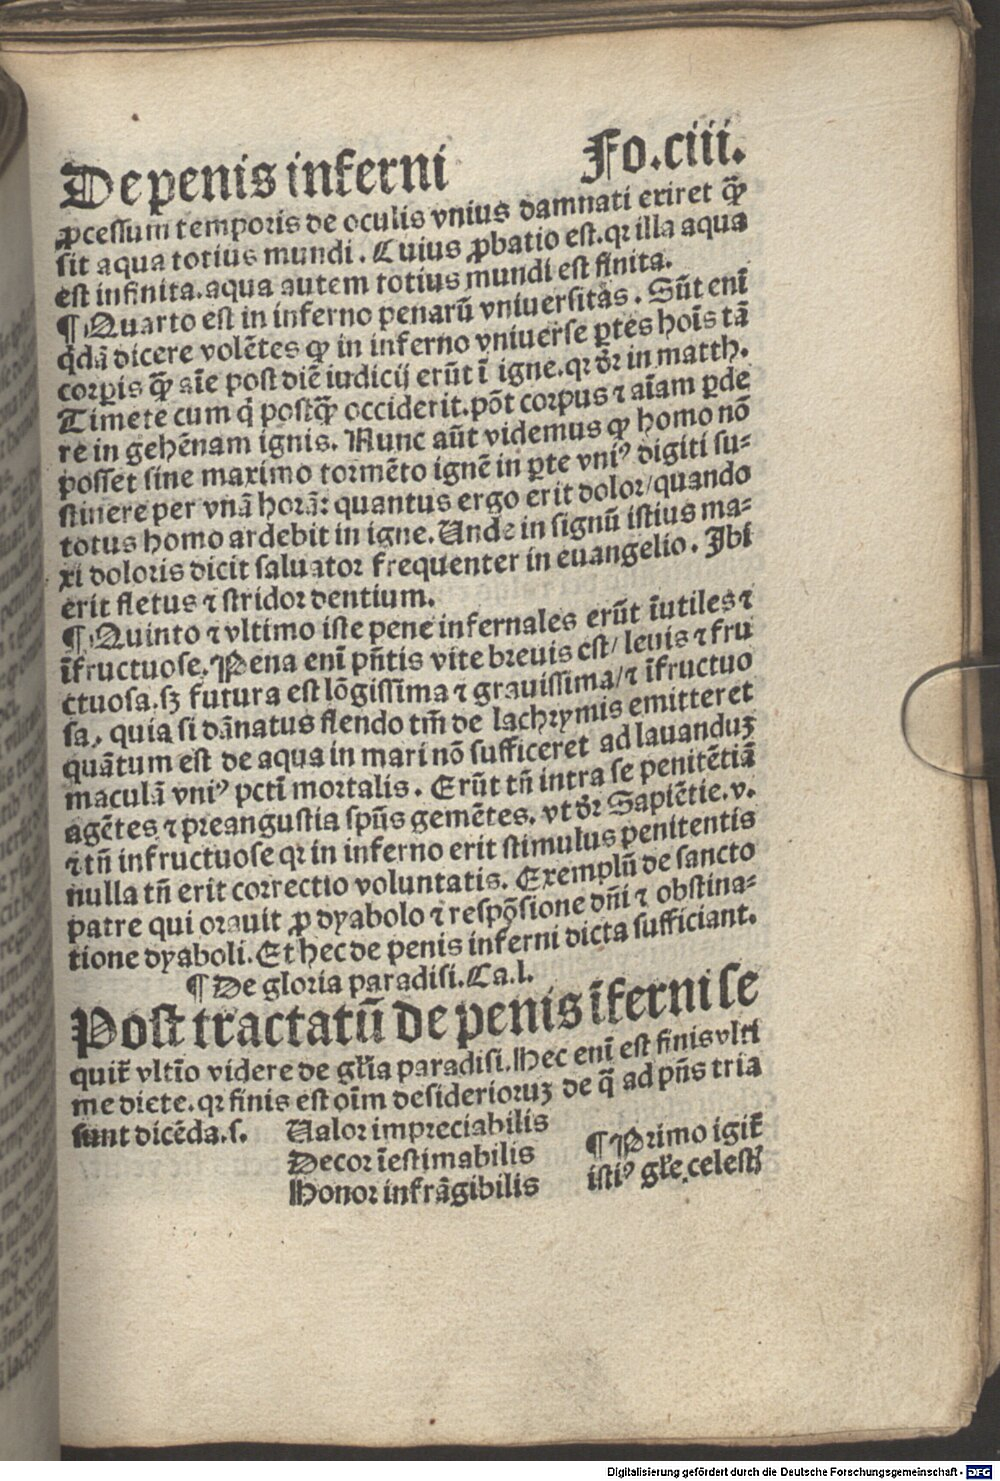 De penis inferni Fo.ciii.
ꝓcessum temporis de oculis vnius damnati exiret q̄ꝫ
sit aqua totius mundi. Cuius ꝓbatio est.qꝛ illa aqua
est infinita.aqua autem totius mundi est finita.
¶ Quarto est in inferno penarū vniuersitas. Sūt enī
q̇dā dicere volētes ꝙ in inferno vniuerse ꝑtes hoīs tā
corꝑis q̄ꝫ aīe post diē iudicij erūt ī igne.qꝛ dr̄ in matth.
Timete eum q̇ postq̄ꝫ occiderit.pōt corpus ⁊ aīam ꝑde
re in gehēnam ignis. Nunc aūt videmus ꝙ homo nō
posset sine maximo tormēto ignē in ꝑte vniꝰ digiti su⸗
stinere per vnā horā: quantus ergo erit dolor/quando
totus homo ardebit in igne. Unde in signū istius ma⸗
xi doloris dicit saluator frequenter in euangelio. Ibi
erit fletus ⁊ stridor dentium.
¶ Quinto ⁊ vltimo iste pene infernales erūt īutiles ⁊
īfructuose. Pena enī pn̄tis vite breuis est/ leuis ⁊ fru
ctuosa.sꝫ futura est lōgissima ⁊ grauissima/⁊ īfructuo
sa, quia si dānatus flendo tm̄ de lachrymis emitteret
quātum est de aqua in mari nō sufficeret ad lauanduꝫ
maculā vniꝰ pctī mortalis. Erūt tn̄ intra se penitētiā
agētes ⁊ pre angustia spūs gemētes, vt dr̄ Sapiētie.v.
⁊ tn̄ infructuose qꝛ in inferno erit stimulus penitentis
nulla tn̄ erit correctio voluntatis. Exemplū de sancto
patre qui orauit ꝓ dyabolo ⁊ respōsione dn̄i ⁊ obstina⸗
tione dyaboli. Et hec de penis inferni dicta sufficiant.
¶ De gloria paradisi. Ca.l.
Post tractatū de penis īferni se
quit̄ vltīo videre de gl̄ia paradisi. Hec enī est finis vlti
me diete.qꝛ finis est oīm desiderioruꝫ de q̄ ad pn̄s tria
sunt dicēda.s. Ualor impreciabilis
Decor īestimabilis
Honor infrāgibilis
¶ Primo igit̄
istiꝰ gl̄e celestꝭ
Digitalisierung gefördert durch die Deutsche Forschungsgemeinschaft - DFG